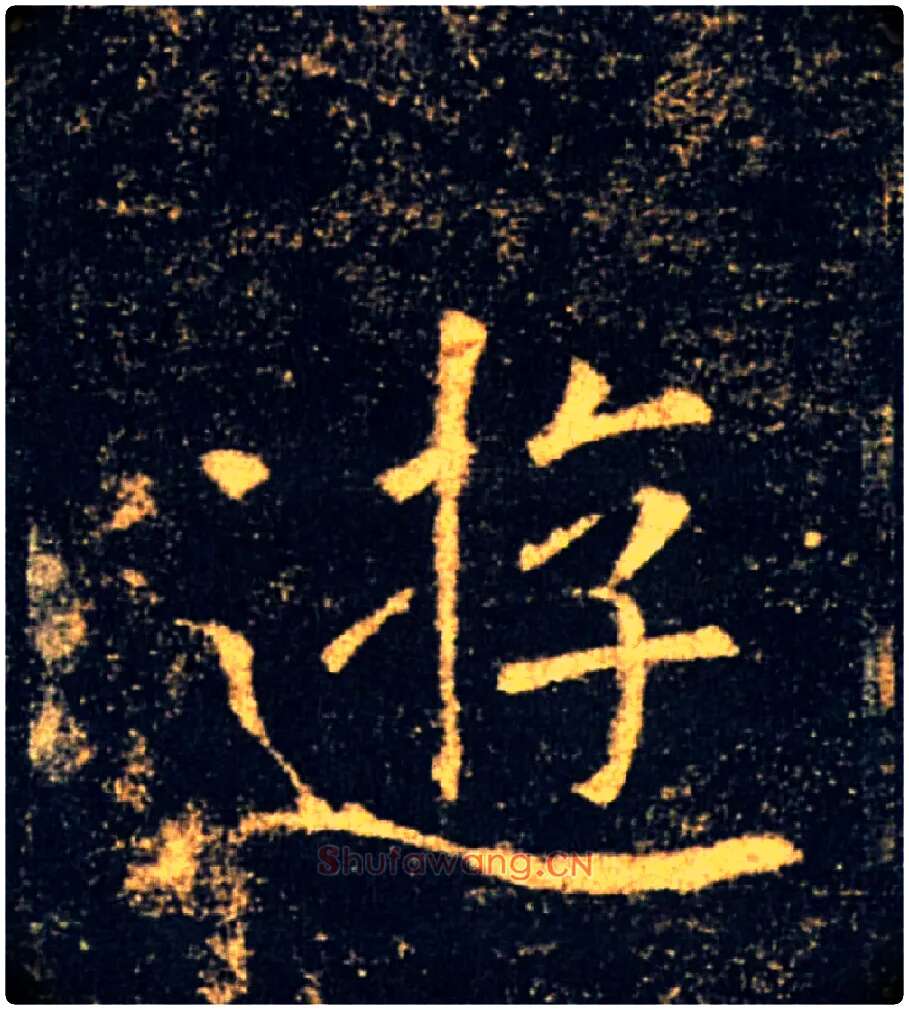 遊
Shufawang.CN